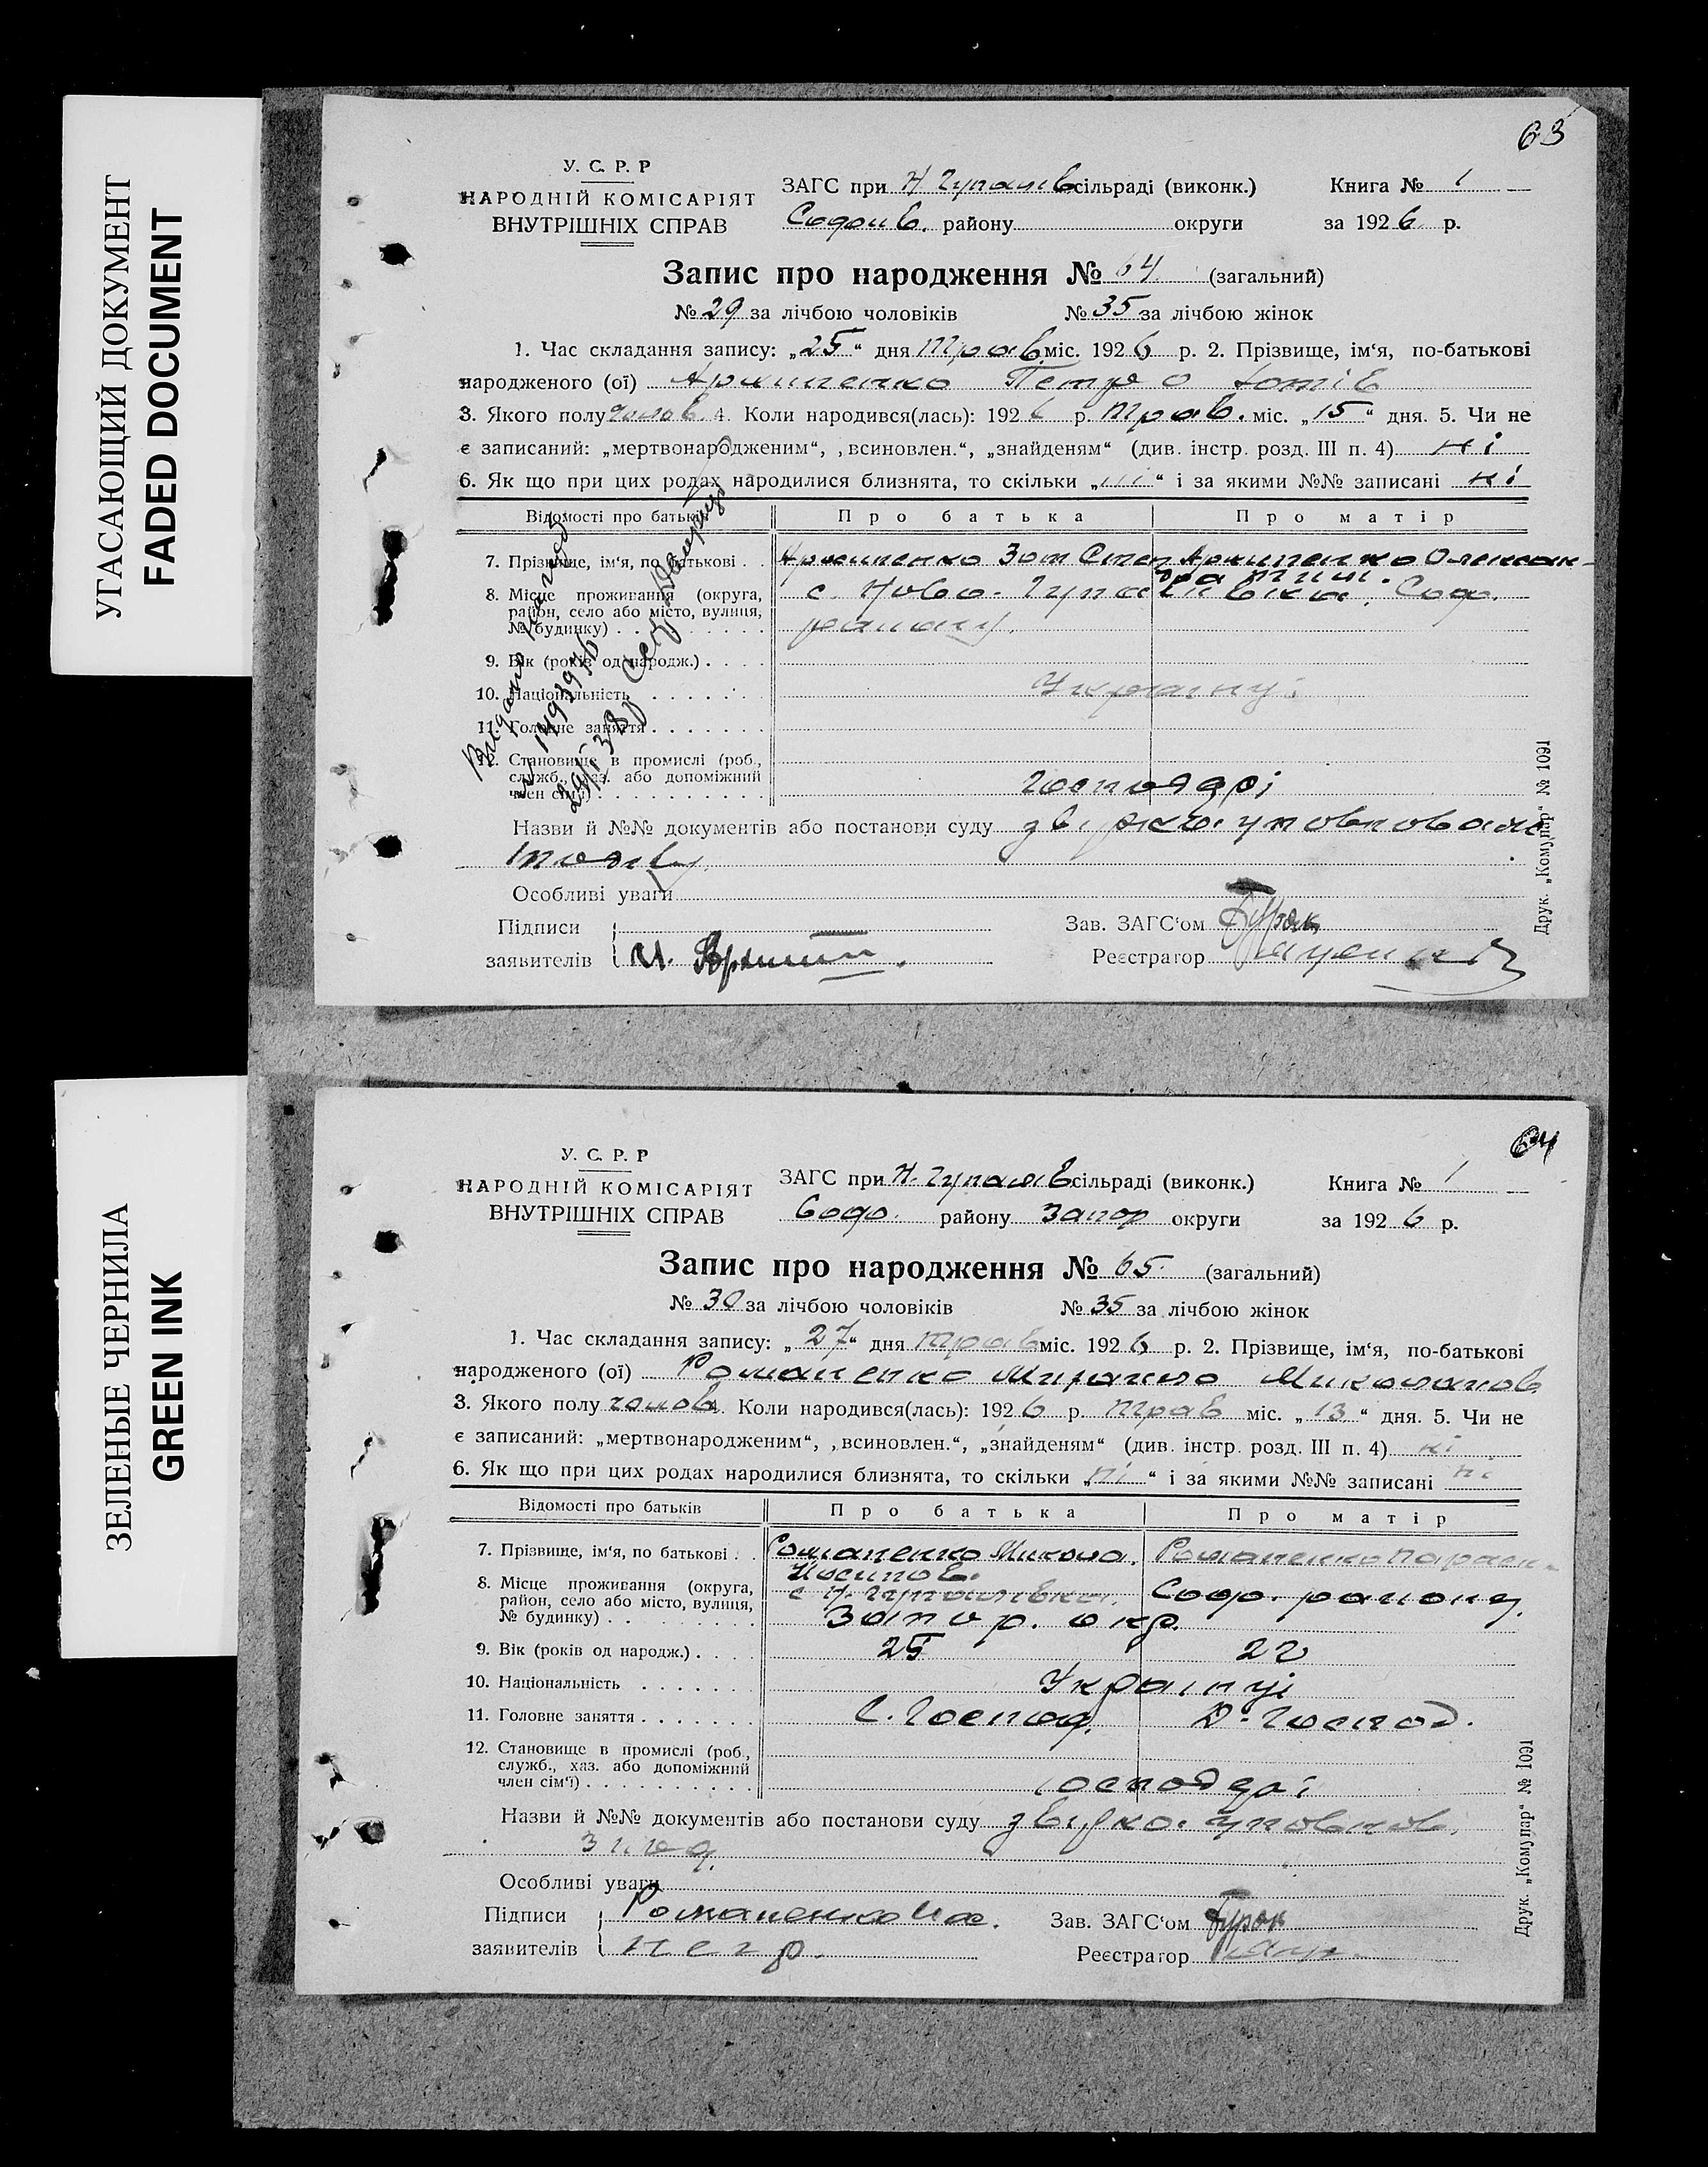 УГАСАЮЩИЙ ДОКУМЕНТ
FADED DOCUMENT
63
У. С. Р. Р
НАРОДНІЙ КОМІСАРІЯТ
ВНУТРІШНІХ СПРАВ
ЗАГС при Н Гупалів сільраді (виконк.) Книга № 1
Софіїв. району округи за 1926 р.
Запис про народження № 64 (загальний)
№ 29 за лічбою чоловіків № 35 за лічбою жінок
1. Час складання запису: „25“ дня Трав міс. 1926 р. 2. Прізвище, ім‘я, по-батькові
народженого (ої) Архипенко Петро Зотів
3. Якого полу чолов. 4. Коли народився(лась): 1926 р. Трав. міс. „15“ дня. 5. Чи не
є записаний: „мертвонародженим“, „всиновлен.“, „знайденям“ (див. інстр. розд. III п. 4) ні
6. Як що при цих родах народилися близнята, то скільки „ні“ і за якими №№ записані ні
Відомості про батьків Про батька Про матір
7. Прізвище, ім‘я, по батькові . . Архипенко Зот Степ Архипенко Олексан-
8. Місце проживання (округа, район, село або місто, вулиця, № будинку) с. Ново-Гупалівка, Соф.
району.
9. Вік (років од народж.)
10. Національність Українці
11. Головне заняття
12. Становище в промислі (роб., служб., хаз. або допоміжний член сім‘ї) господарі
Назви й №№ документів або постанови суду
Особливі уваги
Підписи
заявителів
Зав. ЗАГС‘ом Бурок
Реєстратор
Друк. „Комунар“ № 1091
ЗЕЛЕНЫЕ ЧЕРНИЛА
GREEN INK
64
У. С. Р. Р
НАРОДНІЙ КОМІСАРІЯТ
ВНУТРІШНІХ СПРАВ
ЗАГС при Н. Гупалів сільраді (виконк.) Книга № 1
Софі. району Запор округи за 1926 р.
Запис про народження № 65 (загальний)
№ 30 за лічбою чоловіків № 35 за лічбою жінок
1. Час складання запису: „27“ дня трав міс. 1926 р. 2. Прізвище, ім‘я, по-батькові
народженого (ої) Романенко Михайло Миколайов
3. Якого полу чолов 4. Коли народився(лась): 1926 р. Трав міс. „13“ дня. 5. Чи не
є записаний: „мертвонародженим“, „всиновлен.“, „знайденям“ (див. інстр. розд. III п. 4) ні
6. Як що при цих родах народилися близнята, то скільки „ні“ і за якими №№ записані ні
Відомості про батьків Про батька Про матір
7. Прізвище, ім‘я, по батькові . . Романенко Микола. Романенко Параск-
Йосипов.
8. Місце проживання (округа, район, село або місто, вулиця, № будинку) с Н-Гупалівка. Соф. району.
Запор. окр.
9. Вік (років од народж.) 25 22
10. Національність Українці
11. Головне заняття С. Господ. Д-господ.
12. Становище в промислі (роб., служб., хаз. або допоміжний член сім‘ї) господарі
Назви й №№ документів або постанови суду
Особливі уваги
Підписи Романенко
заявителів
Зав. ЗАГС‘ом Бурок
Реєстратор
Друк. „Комунар“ № 1091